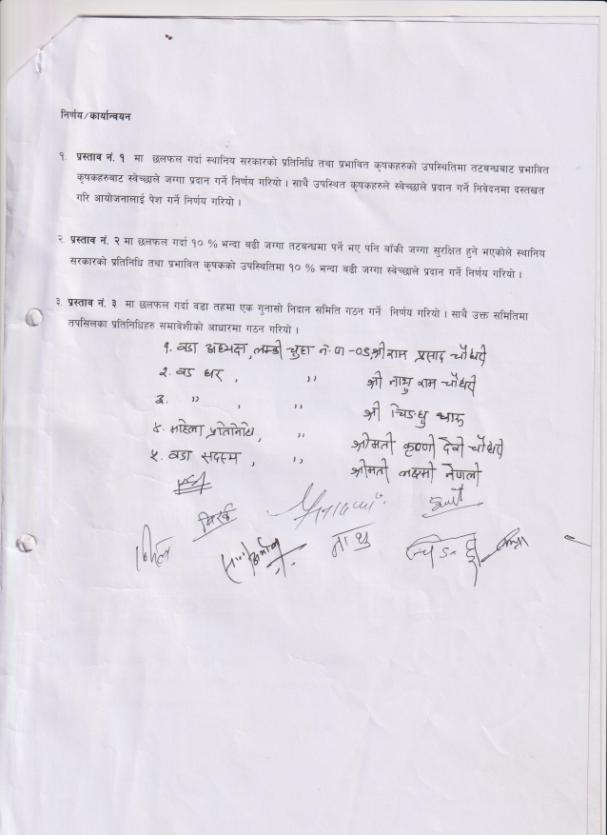 निर्णय/कार्यान्वयन
१. प्रस्ताव नं. १ मा छलफल गर्दा स्थानिय सरकारको प्रतिनिधि तथा प्रभावित कृषकहरुको उपस्थितिमा तटबन्धबाट प्रभावित
कृषकहरुबाट स्वेच्छाले जग्गा प्रदान गर्ने निर्णय गरियो । साथै उपस्थित कृषकहरुले स्वेच्छाले प्रदान गर्ने निवेदनमा दस्तखत
गरि आयोजनालाई पेश गर्ने निर्णय गरियो ।
२. प्रस्ताव नं. २ मा छलफल गर्दा १० % भन्दा बढी जग्गा तटबन्धमा पर्ने भए पनि बाँकी जग्गा सुरक्षित हुने भएकोले स्थानिय
सरकारको प्रतिनिधि तथा प्रभावित कृषकको उपस्थितिमा १० % भन्दा बढी जग्गा स्वेच्छाले प्रदान गर्ने निर्णय गरियो ।
३. प्रस्ताव नं. ३ मा छलफल गर्दा वडा तहमा एक गुनासो निदान समिति गठन गर्ने निर्णय गरियो । साथै उक्त समितिमा
तपसिलका प्रतिनिधिहरु समावेशीको आधारमा गठन गरियो ।
१. वडा अध्यक्ष, लम्की चुहा न.पा-०८, श्री राम प्रसाद चौधरी
२. वड घर , ,, श्री नाथु राम चौधरी
३. ,, , ,, श्री चिङधु थारु
४. महिला प्रतिनिधि, ,, श्रीमती कृष्णी देवी चौधरी
५. वडा सदस्य , ,, श्रीमती लक्ष्मी नेपाली
नाथु